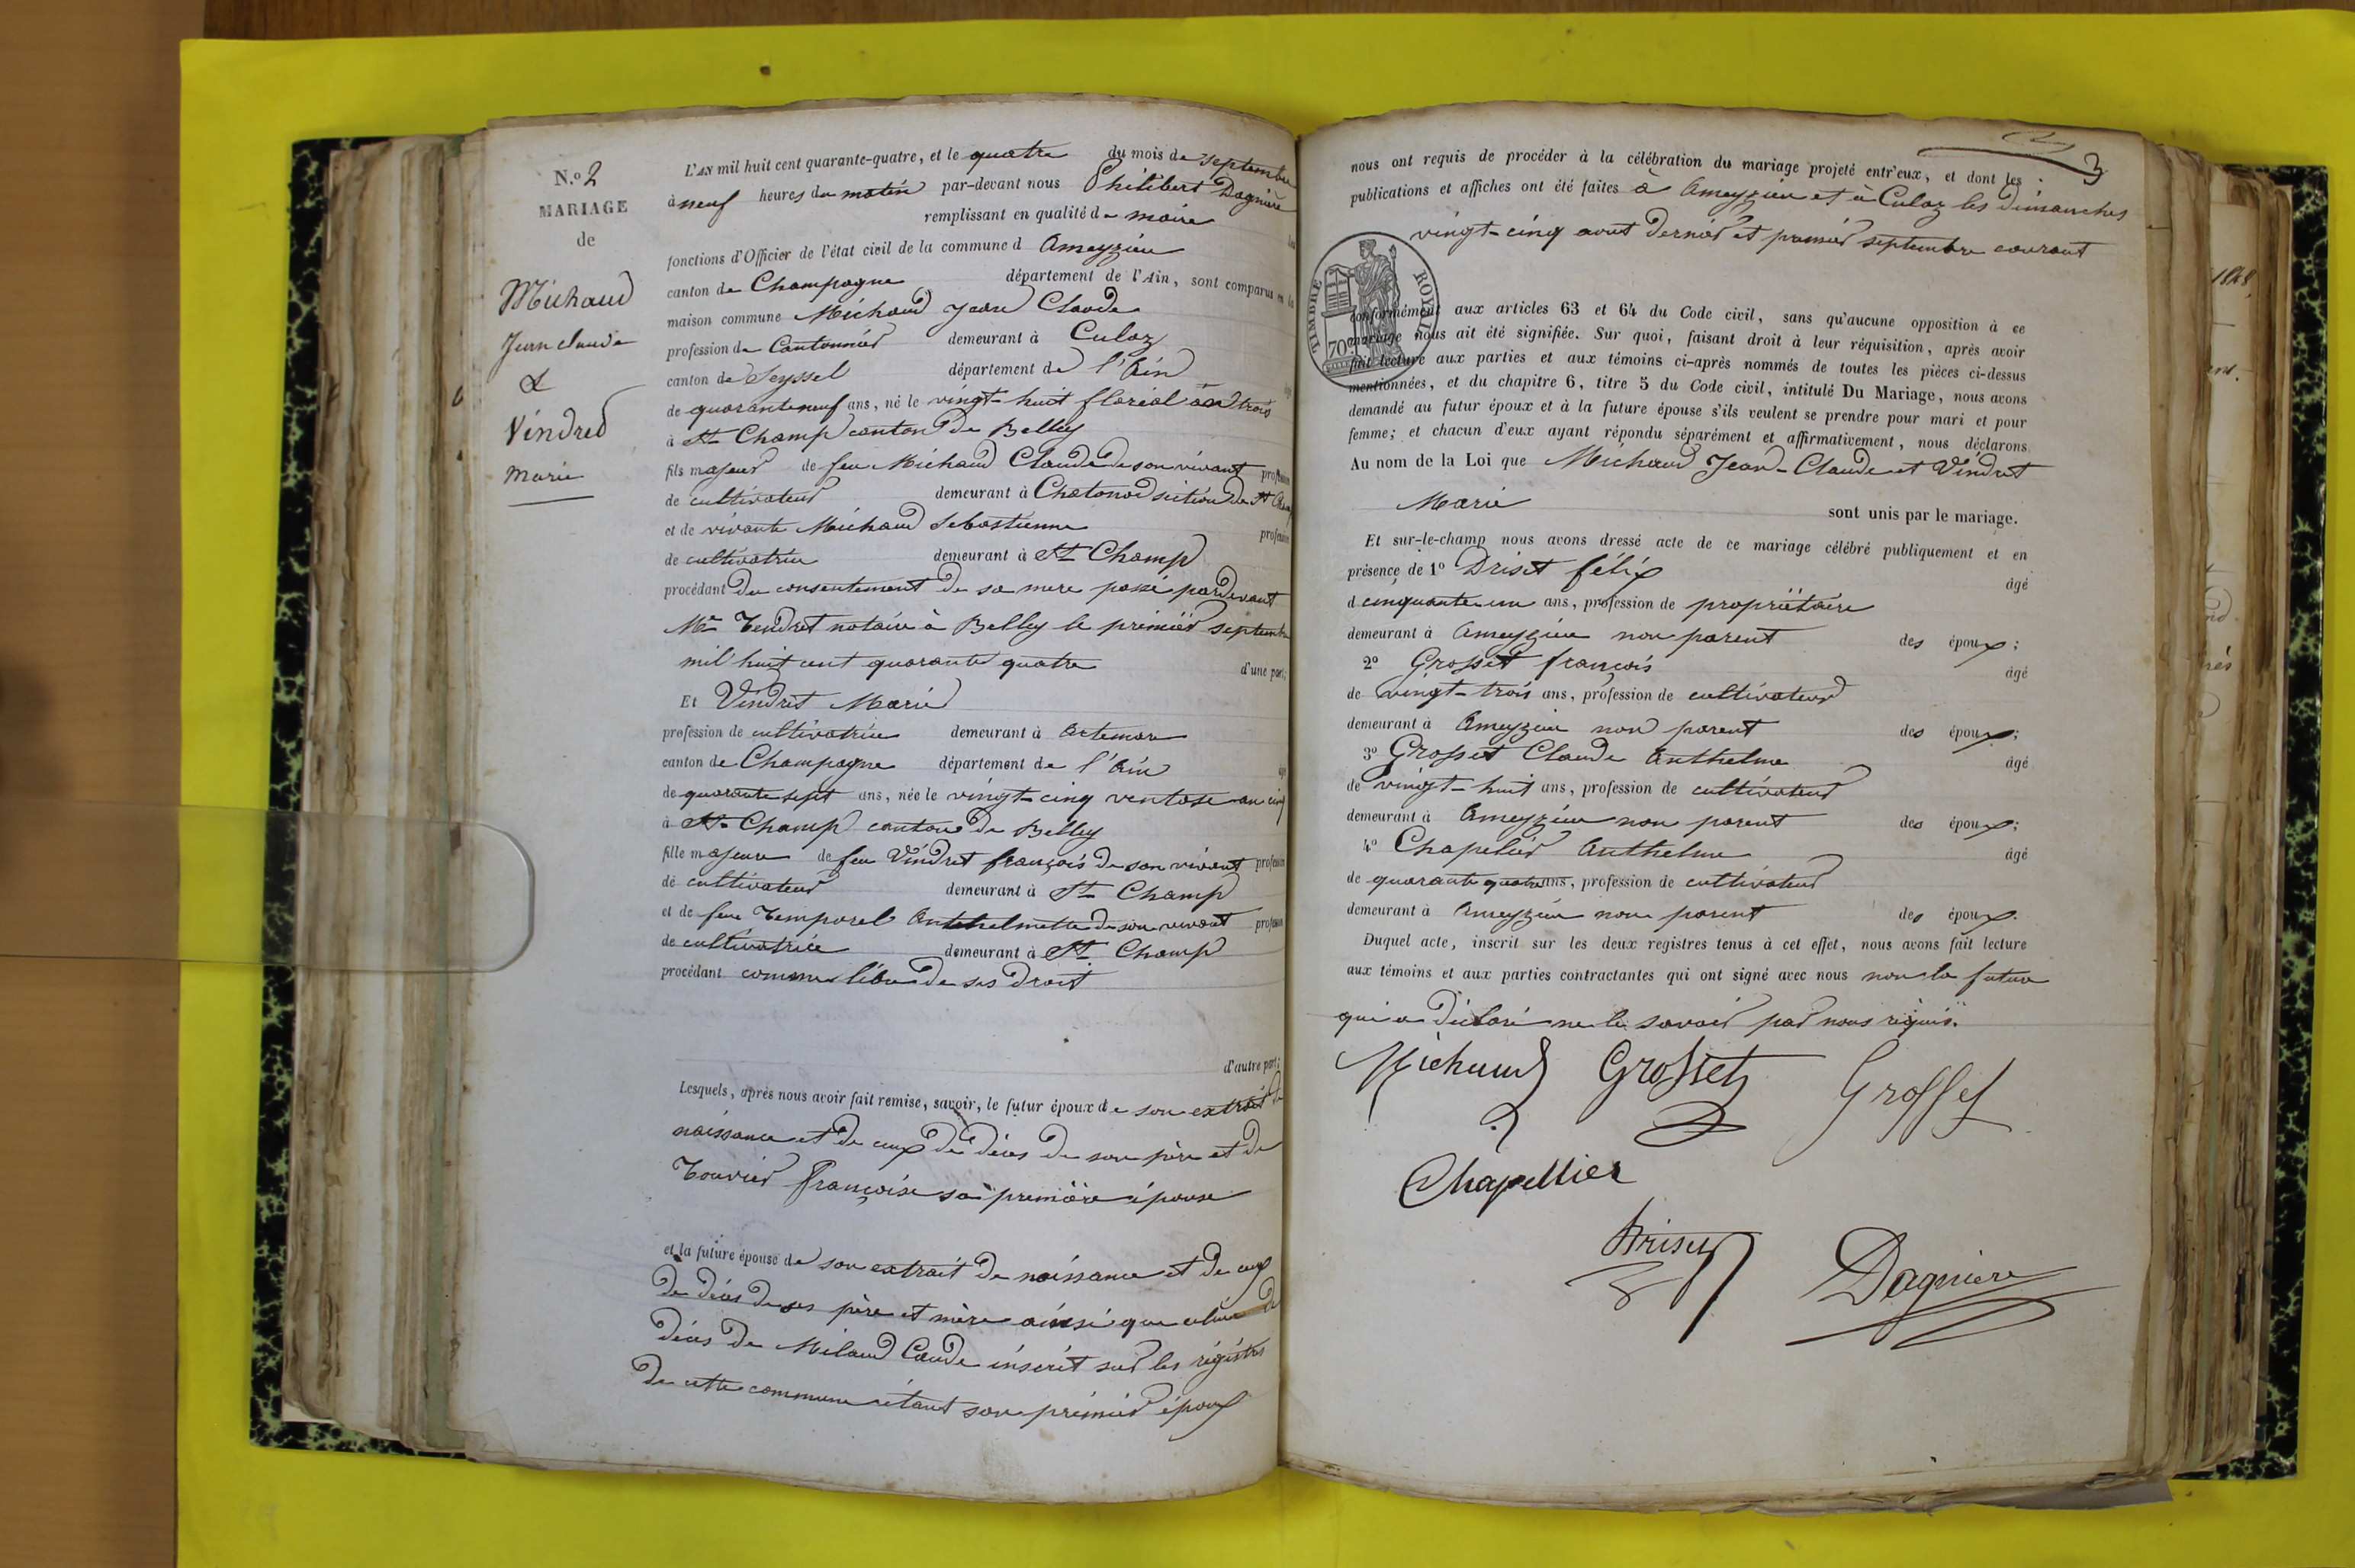 N.o 2
MARIAGE
de
Michaud
Jean claude
&
Vindred
Marie
L'AN mil huit cent quarante-quatre, et le quatre du mois de septembre
à neuf heures du matin par-devant nous Philibert Dagnière
remplissant en qualité de maire les
fonctions d'Officier de l'état civil de la commune d Ameyzieu
canton de Champagne département de l'Ain, sont comparus en la
maison commune Michaud Jean Claude
profession de Cantonnier demeurant à Culoz
canton de Seyssel département de l'Ain âgé
de quaranteneuf ans, né le vingt-huit floréal an trois
à St Champ canton de Belley
fils majeur de feu Michaud Claude de son vivant profession
de cultivateur demeurant à Chatonod section de St Champ
et de vivante Michaud Sebastienne profession
de cultivatrice demeurant à St Champ
procédant du consentement de sa mere passé pardevant
Me Tendret notaire à Belley le premier septembre
mil huit cent quarante quatre d'une part;
Et Vindret Marie
profession de cultivatrice demeurant à Artemare
canton de Champagne département de l'Ain âgé
de quarante sept ans, née le vingt-cinq ventose an cinq
à St Champ canton de Belley
fille majeure de feu Vindret françois de son vivant profession
de cultivateur demeurant à St Champ
et de feue Temporel Anthelmette de son vivant profession
de cultivatrice demeurant à St Champ
procédant comme libre de ses droit
d'autre part;
Lesquels, après nous avoir fait remise, savoir, le futur époux de son extrait de
naissance et de ceux de décès de son père et de
Françoise sa première épouse
et la future épouse de son extrait de naissance et de ceux
de décès de ses père et mère ainsi que celui de
décès de Milaud Caude inscrit sur les régistres
de cette commune étant son premier époux
3
nous ont requis de procéder à la célébration du mariage projeté entr'eux, et dont les
publications et affiches ont été faites à Ameyzieu et à Culoz les dimanches
vingt-cinq aout dernier et premier septembre courant
TIMBRE ROYAL
70c
conformément aux articles 63 et 64 du Code civil, sans qu'aucune opposition à ce
mariage nous ait été signifiée. Sur quoi, faisant droit à leur réquisition, après avoir
fait lecture aux parties et aux témoins ci-après nommés de toutes les pièces ci-dessus
mentionnées, et du chapitre 6, titre 5 du Code civil, intitulé Du Mariage, nous avons
demandé au futur époux et à la future épouse s'ils veulent se prendre pour mari et pour
femme; et chacun d'eux ayant répondu séparément et affirmativement, nous déclarons
Au nom de la Loi que Michaud Jean-Claude et Vindret
Marie sont unis par le mariage.
Et sur-le-champ nous avons dressé acte de ce mariage célébré publiquement et en
présence de 1o Driset félix âgé
d cinquante-un ans, profession de propriétaire
demeurant à Ameyzieu non parent des époux;
2o Grosset françois âgé
de vingt-trois ans, profession de cultivateur
demeurant à Ameyzieu non parent des époux;
3o Grosset Claude Anthelme âgé
de vingt-huit ans, profession de cultivateur
demeurant à Ameyzieu non parent des époux;
4o Chapelier Anthelme âgé
de quarante quatre ans, profession de cultivateur
demeurant à Ameyzieu non parent des époux.
Duquel acte, inscrit sur les deux registres tenus à cet effet, nous avons fait lecture
aux témoins et aux parties contractantes qui ont signé avec nous non la future
qui a déclaré ne le savoir par nous réquis.
Michaud Grosset Grosset
Chapellier
Driset Dagniere
1848